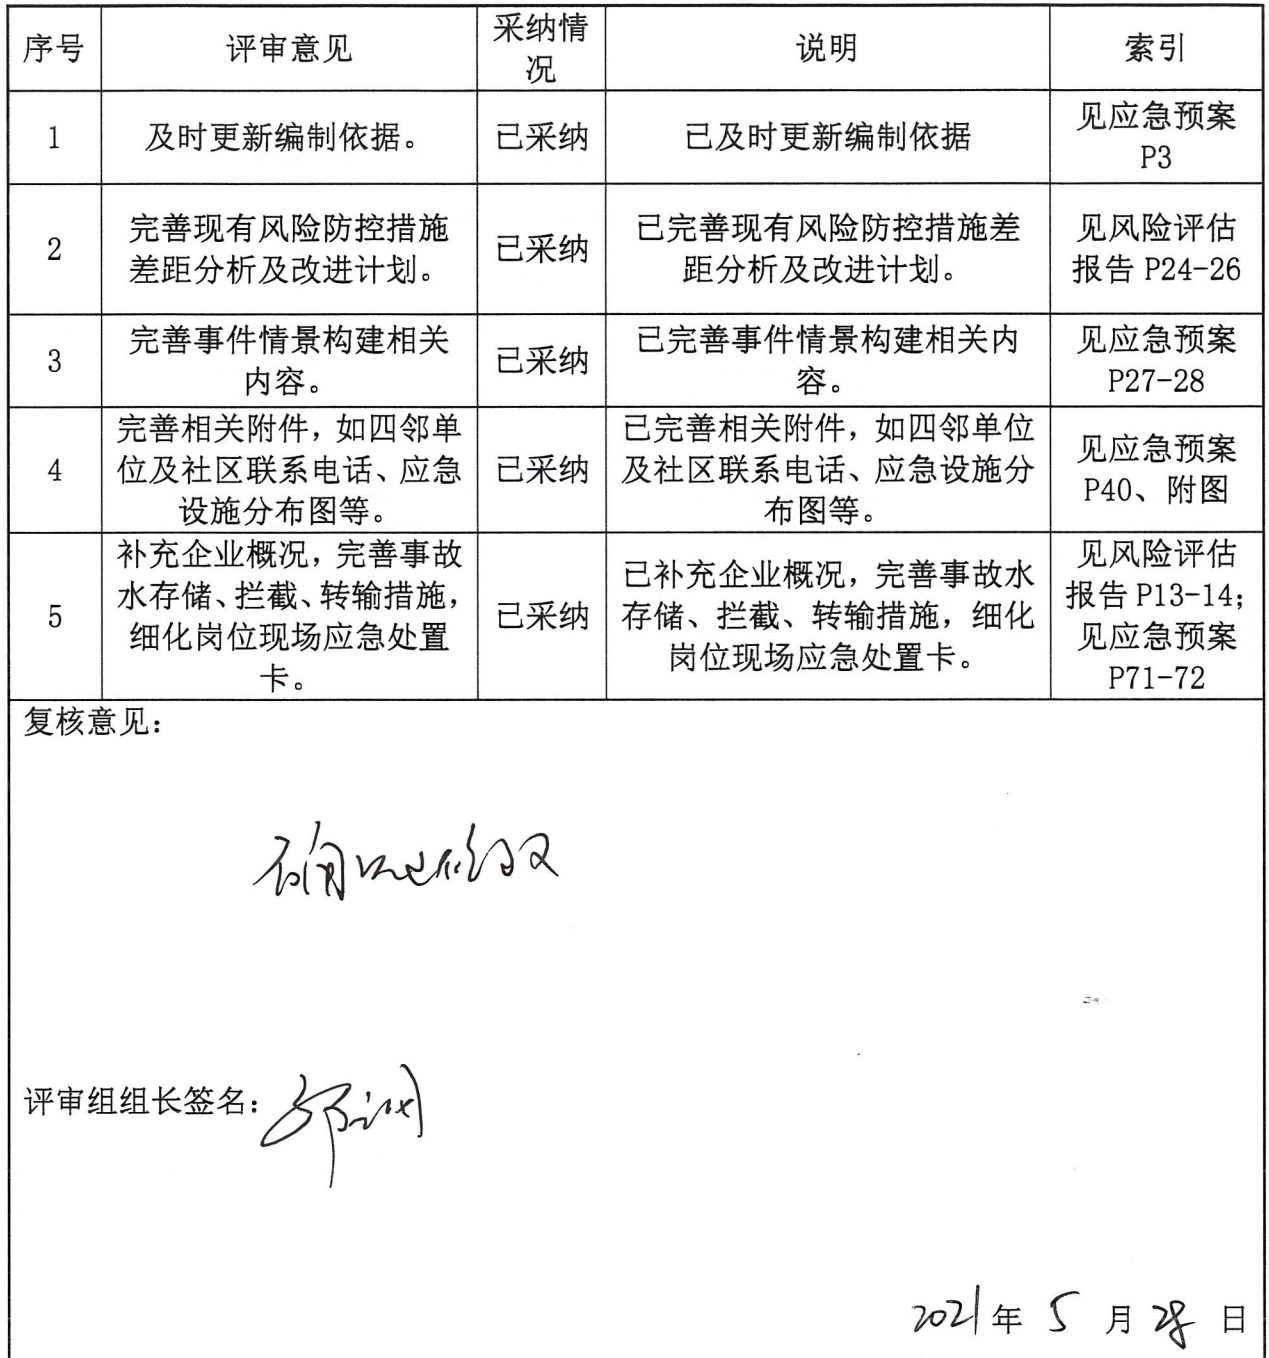 序号 评审意见 采纳情况 说明 索引
1 及时更新编制依据。 已采纳 已及时更新编制依据 见应急预案
P3
2 完善现有风险防控措施
差距分析及改进计划。 已采纳 已完善现有风险防控措施差
距分析及改进计划。 见风险评估
报告 P24-26
3 完善事件情景构建相关
内容。 已采纳 已完善事件情景构建相关内
容。 见应急预案
P27-28
4 完善相关附件，如四邻单
位及社区联系电话、应急
设施分布图等。 已采纳 已完善相关附件，如四邻单位
及社区联系电话、应急设施分
布图等。 见应急预案
P40、附图
5 补充企业概况，完善事故
水存储、拦截、转输措施，
细化岗位现场应急处置
卡。 已采纳 已补充企业概况，完善事故水
存储、拦截、转输措施，细化
岗位现场应急处置卡。 见风险评估
报告 P13-14；
见应急预案
P71-72
复核意见：
确认已修改
评审组组长签名：
2021年 5 月 28 日